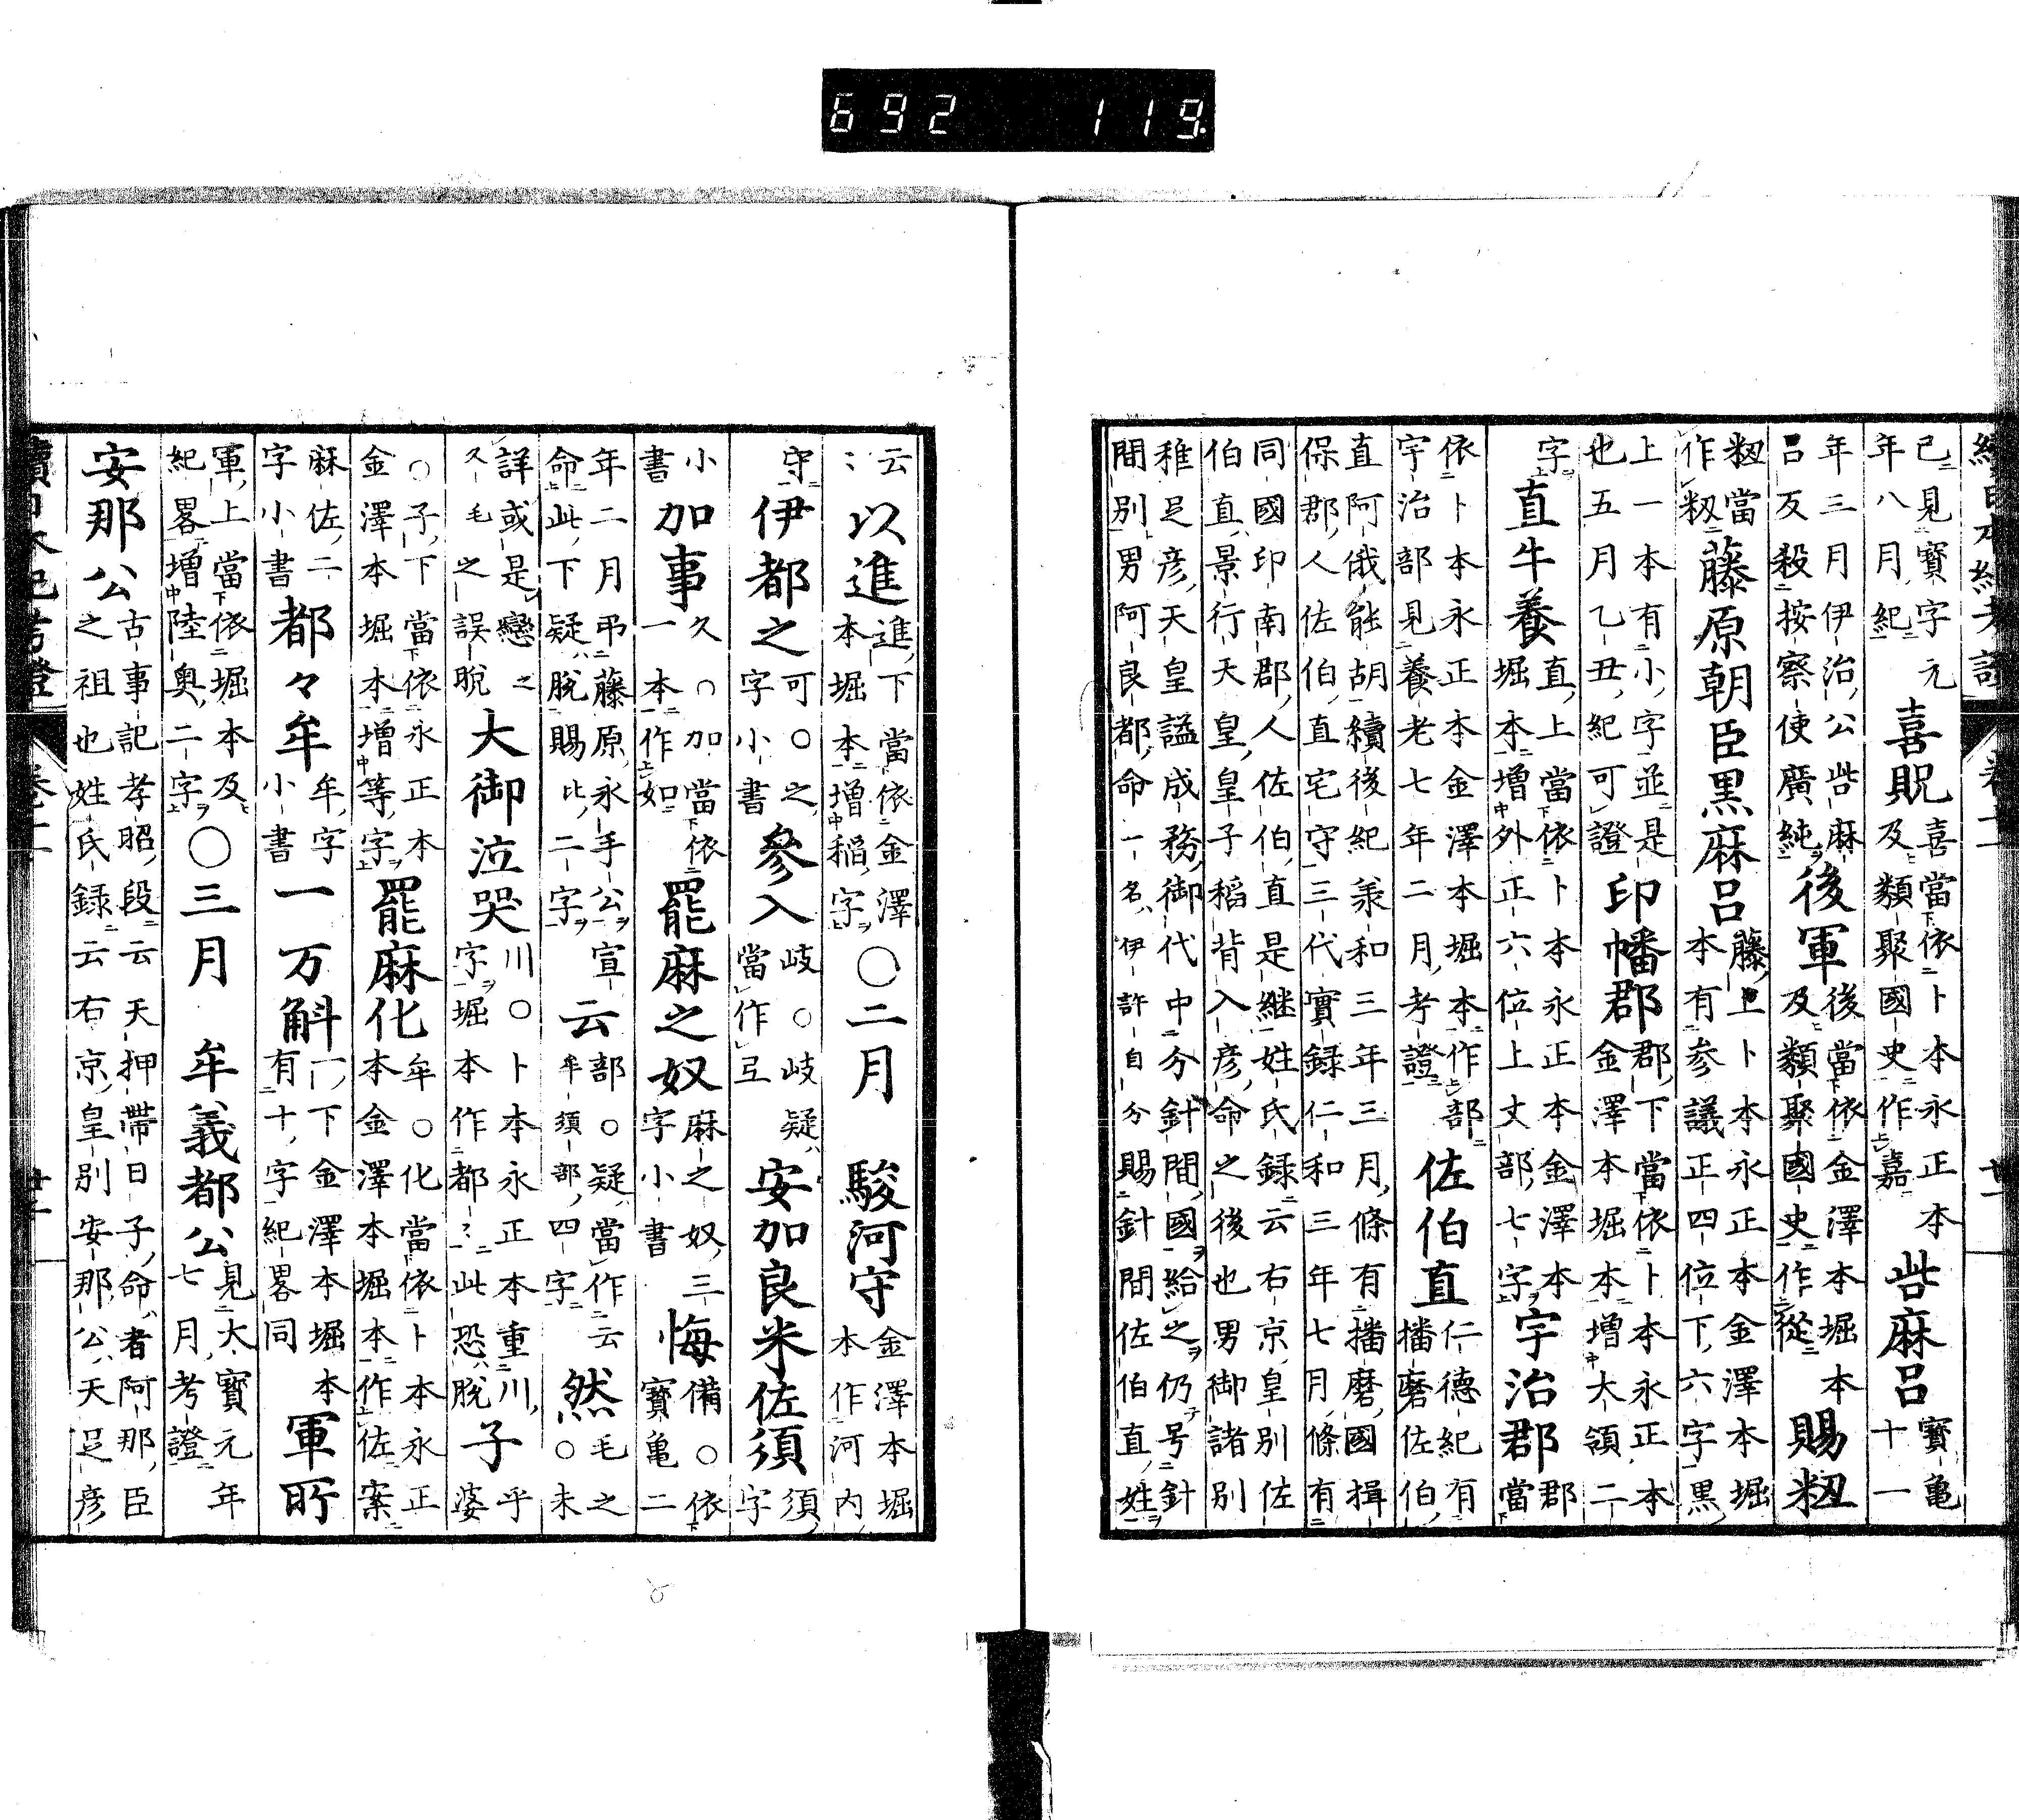 692 119.
已見寶字元
年八月紀
喜
貺
喜當依卜本永正本
及類聚國史作嘉
呰麻呂
寶亀
十一
年三月伊治公呰麻
呂反殺按察使廣純
後軍
後當依金澤本堀本
及類聚國史作從
賜籾
籾當
作籾
藤原朝臣黑麻呂
藤上卜本永正本金澤本堀
本有参議正四位下六字黑
上一本有小字並是
也五月乙丑紀可證
印幡郡
郡下當依卜本永正本
金澤本堀本增大領二
字
直牛養
直上當依卜本永正本金澤本
堀本增外正六位上丈部七字
宇治郡
郡
當
依卜本永正本金澤本堀本作部
宇治部見養老七年二月考證
佐伯直
仁德紀有
播磨佐伯
直阿俄能胡續後紀羕和三年三月條有播磨國揖
保郡人佐伯直宅守三代實録仁和三年七月條有
同國印南郡人佐伯直是継姓氏録云右京皇別佐
伯直景行天皇皇子稻背入彦命之後也男御諸別
稚足彦天皇謚成務御代中分針間國給之仍号針
間別男阿良都命一名伊許自分賜針間佐伯直姓
云
々
以進
進下當依金澤
本堀本增稻字
○二月　駿河守
金澤本堀
本作河内
守
伊都之
可○之
字小書
參入
岐○岐疑
當作弖
安加良米佐須
須
字
小
書
加事
久○加當依
一本作如
罷麻之奴
麻之奴三
字小書
悔
備○依
寶亀二
年二月弔藤原永手公宣
命此下疑脫賜比二字
云
部○疑當作云
牟須部四字
然
毛之
○未
詳或是戀之
久毛之誤脫
大御泣哭
川○卜本永正本重川
字堀本作都々此恐脫
子
乎
婆
○子下當依永正本
金澤本堀本增等字
罷麻化
牟○化當依卜本永正
本金澤本堀本作佐案
麻佐二
字小書
都々牟
牟字
小書
一万斛
一下金澤本堀本
有十字紀畧同
軍所
軍上當依堀本及
紀畧增陸奥二字
○三月　牟義都公
見大寶元年
七月考證
安那公
古事記孝昭段云天押帶日子命者阿那臣
之祖也姓氏録云右京皇別安那公天足彦